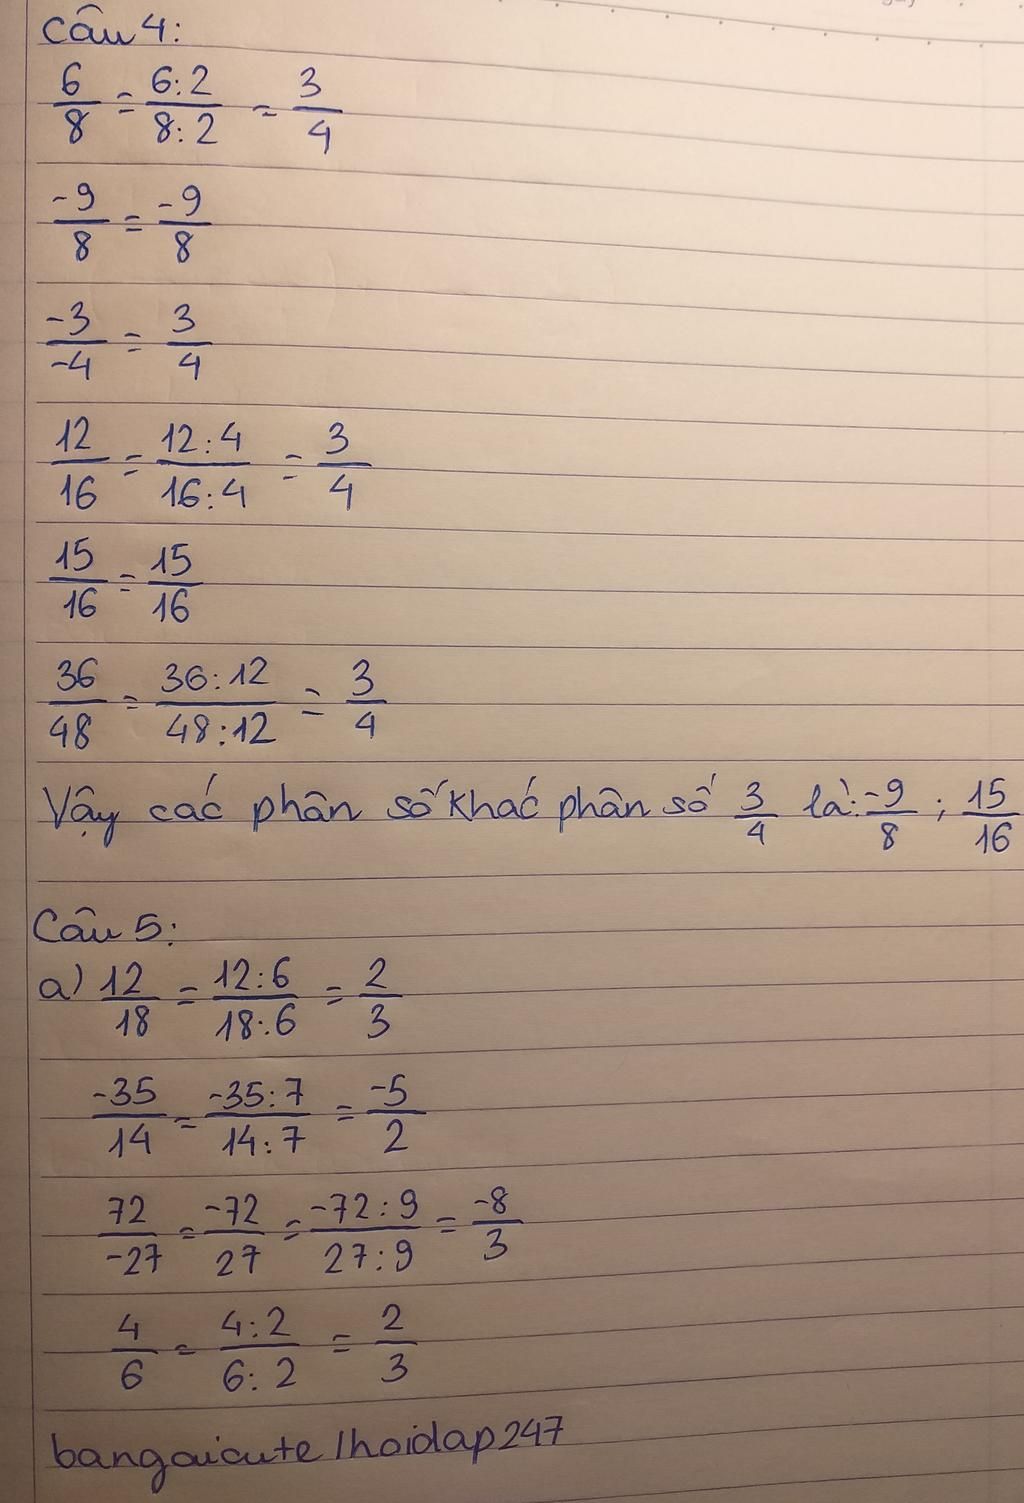 Câu 4:
6/8 = 6:2/8:2 = 3/4
-9/8 = -9/8
-3/-4 = 3/4
12/16 = 12:4/16:4 = 3/4
15/16 = 15/16
36/48 = 36:12/48:12 = 3/4
Vậy các phân số khác phân số 3/4 là: -9/8 ; 15/16
Câu 5:
a) 12/18 = 12:6/18:6 = 2/3
-35/14 = -35:7/14:7 = -5/2
72/-27 = -72/27 = -72:9/27:9 = -8/3
4/6 = 4:2/6:2 = 2/3
bangaicute/hoidap247